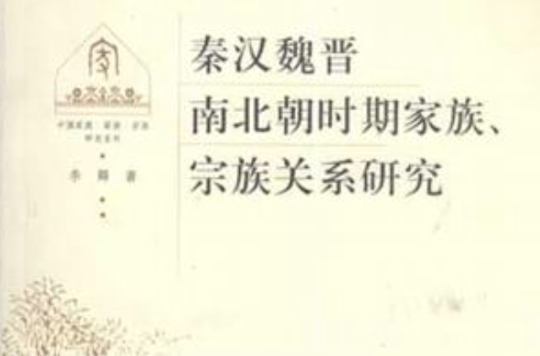 秦汉魏晋
南北朝时期家族、
宗族关系研究
中国家庭·家族·宗族
研究系列
李卿 著